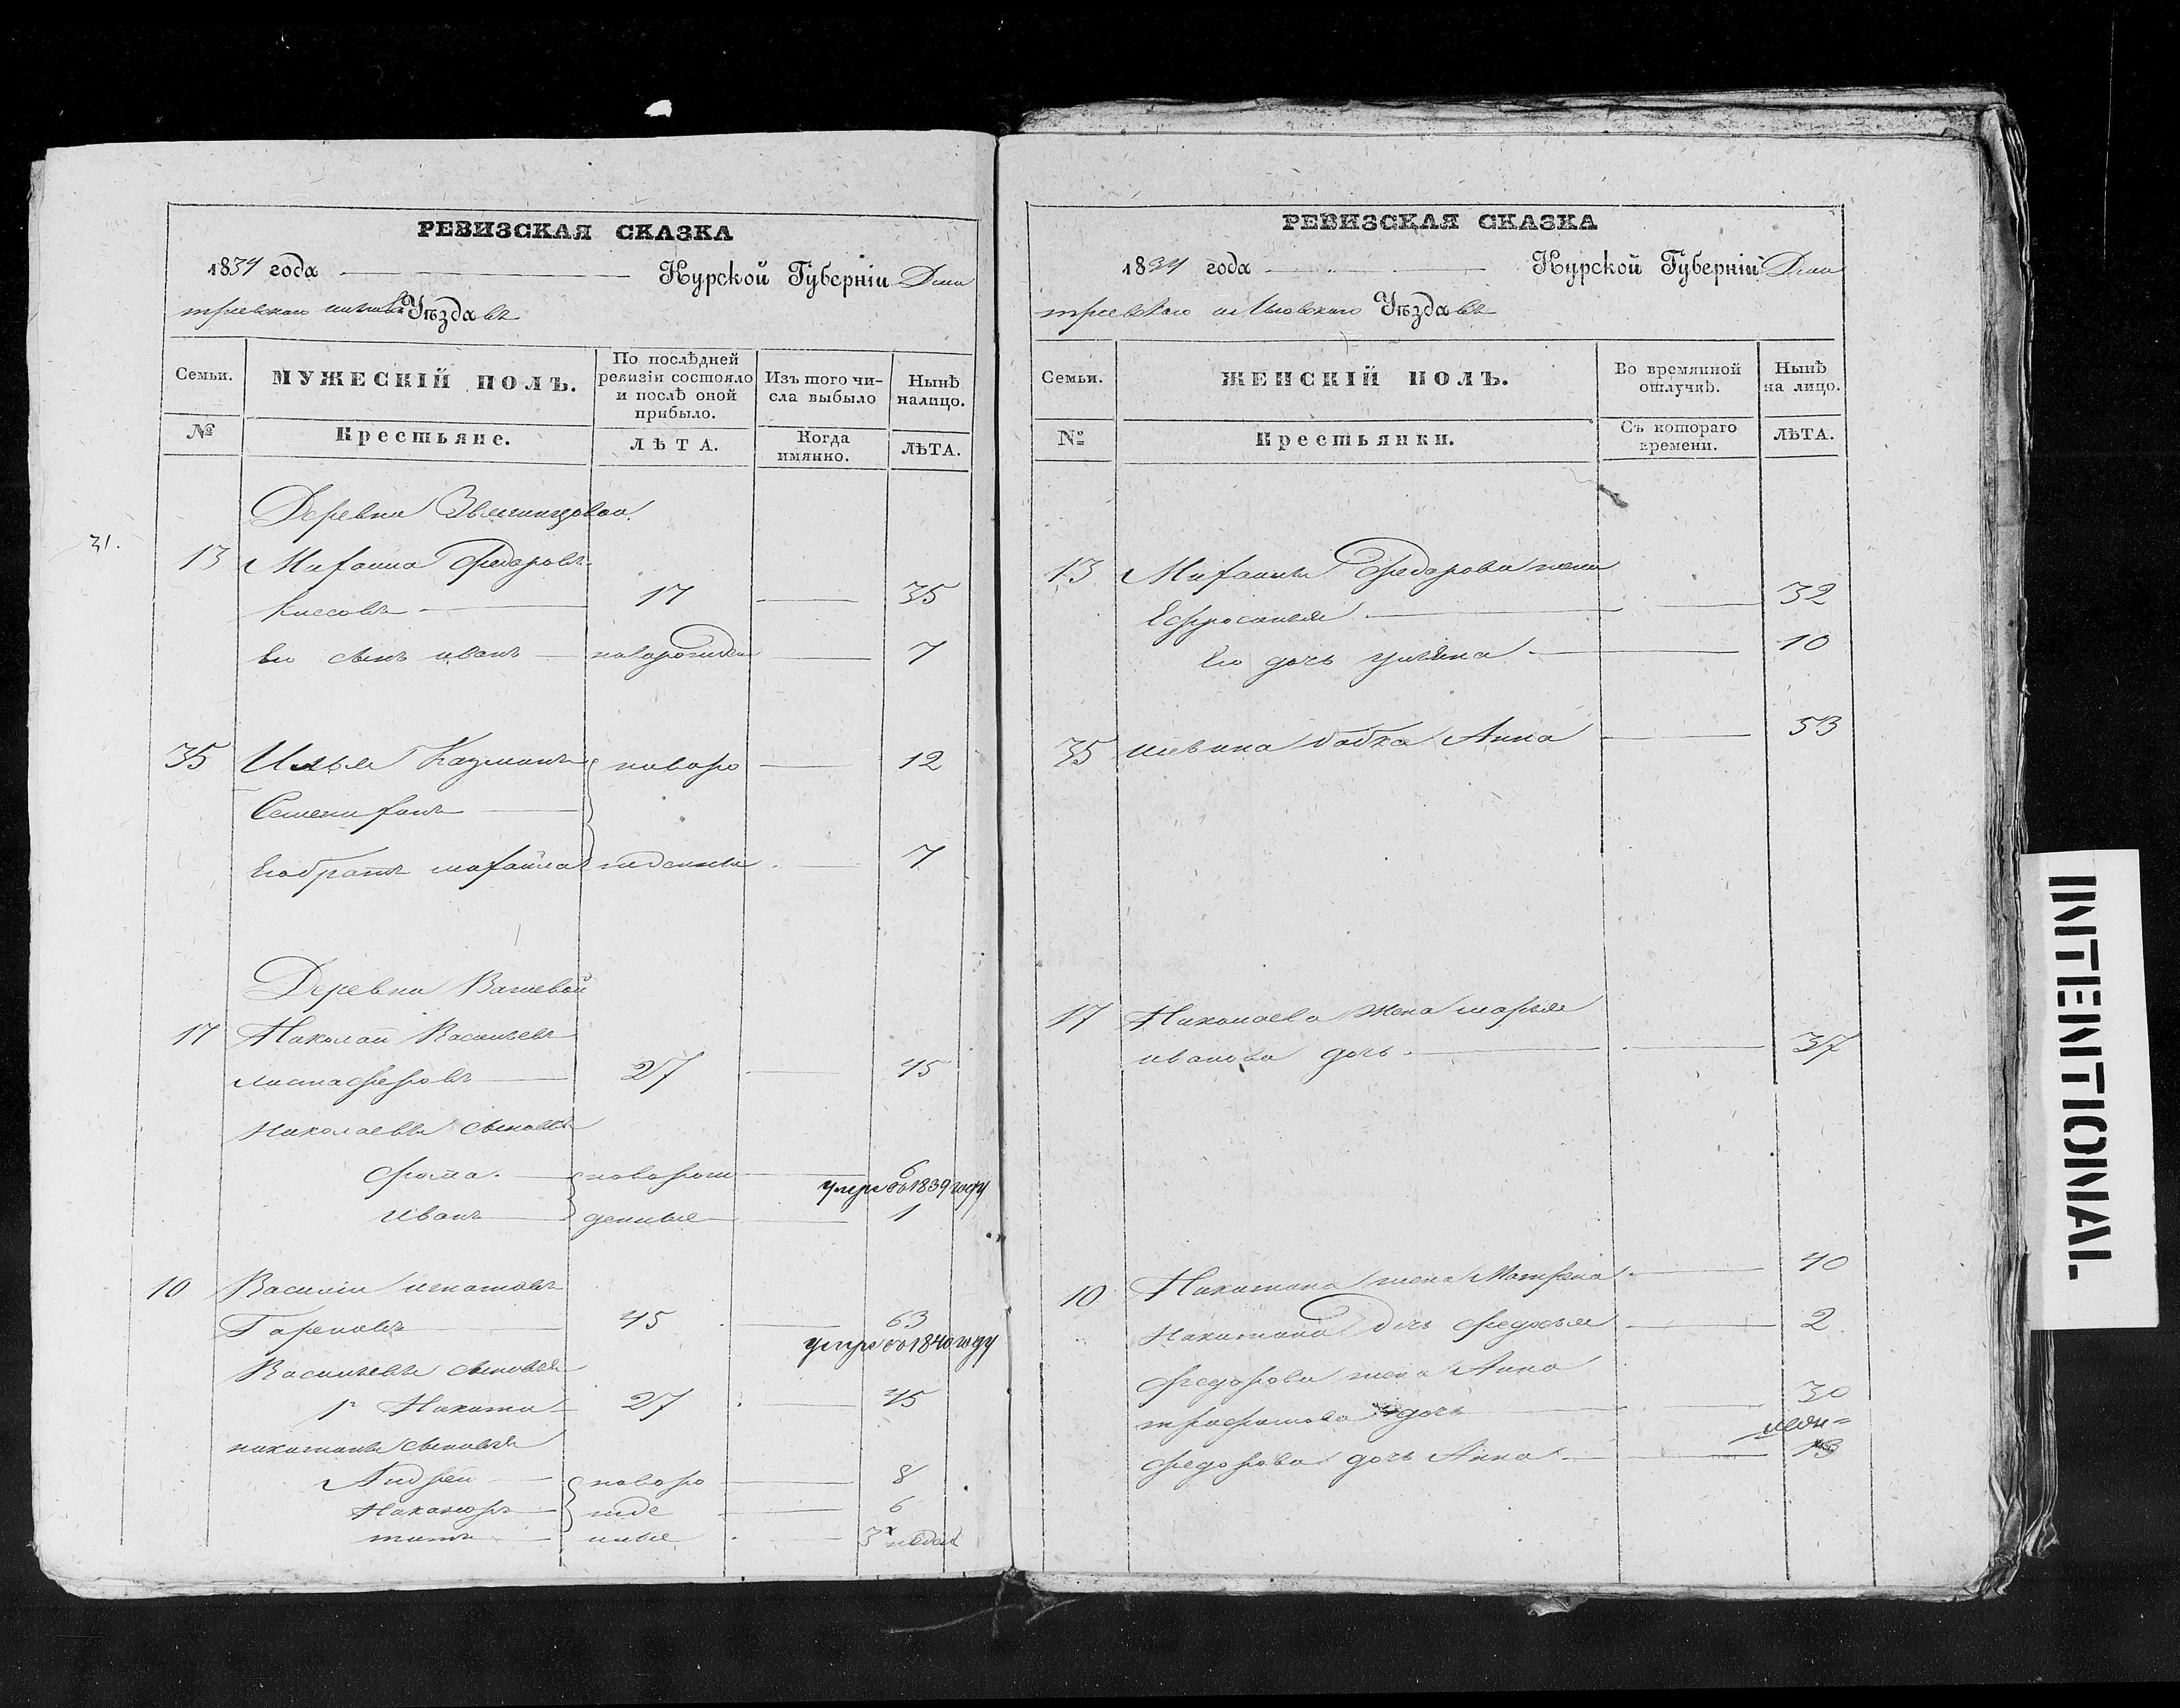 РЕВИЗСКАЯ СКАЗКА
1834 года Курской Губерніи Дми
триевскаго Уѣзда въ
Семьи.
МУЖЕСКІЙ ПОЛЪ.
По послѣдней ревизіи состояло и послѣ оной прибыло.
Изъ того числа выбыло
Нынѣ налицо.
№
Крестьяне.
ЛѢТА.
Когда имянно.
ЛѢТА.
Деревни
31.
13 Михаила Федоровъ
17 35
Ево сынъ иванъ новорожден 7
35 Илья новоро 12
Ево братъ михайла жденныя 7
Деревни
17 Николай Васильевъ
27 45
Николаевы сыновья
фома новорож 6
умре въ 1839 году
Иванъ денные 1
10 Василій игнатовъ
45 63
умре въ 1840 году
Васильевы сыновья
1й Никита 27 45
никитины сыновья
Андрей новоро 8
Никаноръ жде 6
титъ нные 3х недел
РЕВИЗСКАЯ СКАЗКА
1834 года Курской Губерніи Дми
триевскаго Уѣзда въ
Семьи.
ЖЕНСКІЙ ПОЛЪ.
Во времянной отлучкѣ.
Нынѣ на лицо.
№
Крестьянки.
Съ котораго времени.
ЛѢТА.
13 Михаилы Федорова жена
Ефросинья 32
Ево дочь ульяна 10
35 ильина бабка Анна 53
17 Николаева жена марья
иванова дочь 37
10 Никитина жена Матрена 40
Никитина дочь федосья 2
федорова жена Анна
трофимова дочь 30
федорова дочь Анна 13
INTENTIONAL